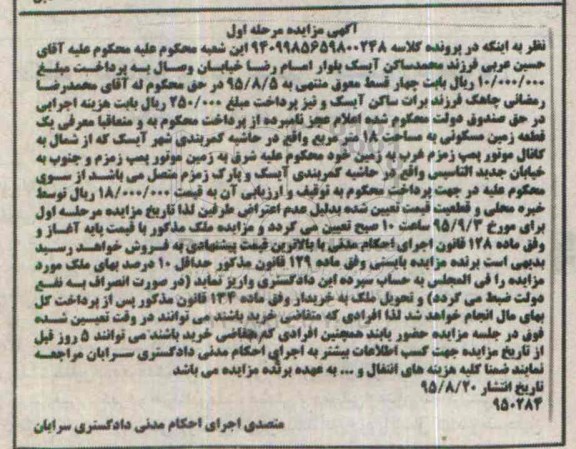 آگهی مزایده مرحله اول
نظر به اینکه در پرونده کلاسه ۹۴۰۹۹۸۵۶۵۹۸۰۰۲۴۸ این شعبه محکوم علیه محکوم علیه آقای
حسین عربی فرزند محمدساکن آیسک بلوار امام رضا خیابان وصال به پرداخت مبلغ
۱۰/۰۰۰/۰۰۰ ریال بابت چهار قسط معوق منتهی به ۹۵/۸/۵ در حق محکوم له آقای محمدرضا
رمضانی چاهک فرزند برات ساکن آیسک و نیز پرداخت مبلغ ۲۵۰/۰۰۰ ریال بابت هزینه اجرایی
در حق صندوق دولت محکوم شده اعلام عجز نامبرده از پرداخت محکوم به و متعاقبا معرفی یک
قطعه زمین مسکونی به مساحت ۱۸۰ متر مربع واقع در حاشیه کمربندی شهر آیسک که از شمال به
کانال موتور پمپ زمزم غرب به زمین خود محکوم علیه شرق به زمین موتور پمپ زمزم و جنوب به
خیابان جدید التاسیس واقع در حاشیه کمربندی آیسک و پارک زمزم متصل می باشد از سوی
محکوم علیه در جهت پرداخت محکوم به توقیف و ارزیابی آن به قیمت ۱۸/۰۰۰/۰۰۰ ریال توسط
خبره محلی و قطعیت قیمت تعیین شده بدلیل عدم اعتراض طرفین لذا تاریخ مزایده مرحله اول
برای مورخ ۹۵/۹/۳ ساعت ۱۰ صبح تعیین می گردد و مزایده ملک مذکور با قیمت پایه آغاز و
وفق ماده ۱۲۸ قانون اجرای احکام مدنی با بالاترین قیمت پیشنهادی به فروش خواهد رسید
بدیهی است برنده مزایده بایستی وفق ماده ۱۲۹ قانون مذکور حداقل ۱۰ درصد بهای ملک مورد
مزایده را فی المجلس به حساب سپرده این دادگستری واریز نماید (در صورت انصراف به نفع
دولت ضبط می گردد) و تحویل ملک به خریدار وفق ماده ۱۳۴ قانون مذکور پس از پرداخت کل
بهای مال انجام خواهد شد لذا افرادی که متقاضی خرید باشند می توانند در وقت تعیین شده
فوق در جلسه مزایده حضور یابند همچنین افرادی که متقاضی خرید باشند می توانند ۵ روز قبل
از تاریخ مزایده جهت کسب اطلاعات بیشتر به اجرای احکام مدنی دادگستری سرایان مراجعه
نمایند ضمنا کلیه هزینه های انتقال و ... به عهده برنده مزایده می باشد
تاریخ انتشار ۹۵/۸/۲۰
۹۵۰۲۸۴
متصدی اجرای احکام مدنی دادگستری سرایان